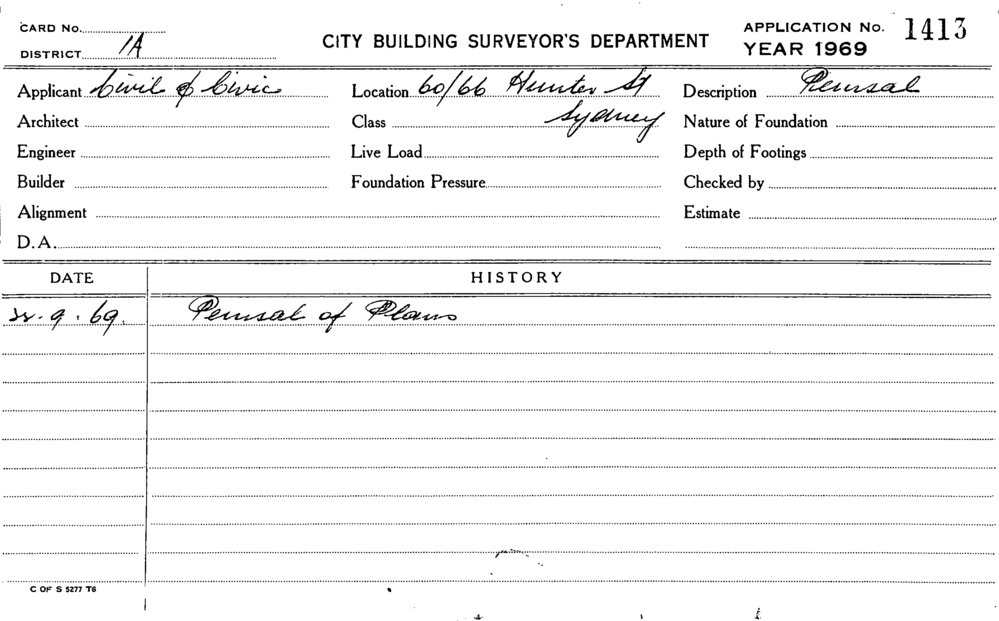 CARD No.
DISTRICT 1A
CITY BUILDING SURVEYOR'S DEPARTMENT
APPLICATION No. 1413
YEAR 1969
Applicant Civil & Civic Location 60/66 Hunter St Description Perusal
Architect Class Sydney Nature of Foundation
Engineer Live Load Depth of Footings
Builder Foundation Pressure Checked by
Alignment Estimate
D.A.
DATE HISTORY
9.69. Perusal of Plans
C OF S 5277 T6